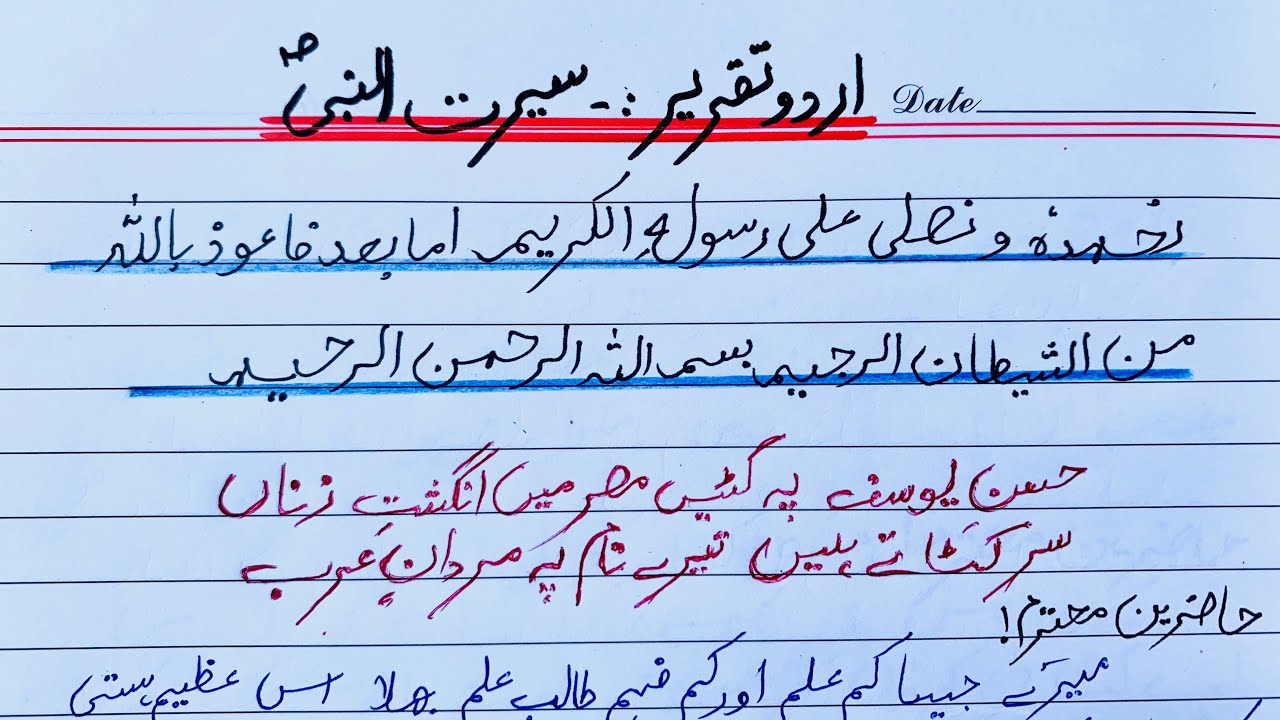 اردو تقریر :۔ سیرت النبیؐ
Date
نحمدہٗ و نصلی علی رسولہِ الکریم اما بعد فاعوذ باللہ
من الشیطان الرجیم بسم اللہ الرحمن الرحیم
حسن یوسف پہ کٹیں مصر میں انگشتِ زناں
سر کٹاتے ہیں تیرے نام پہ مردانِ عرب
حاضرین محترم!
میرے جیسا کم علم اور کم فہم طالب علم بھلا اس عظیم ہستی